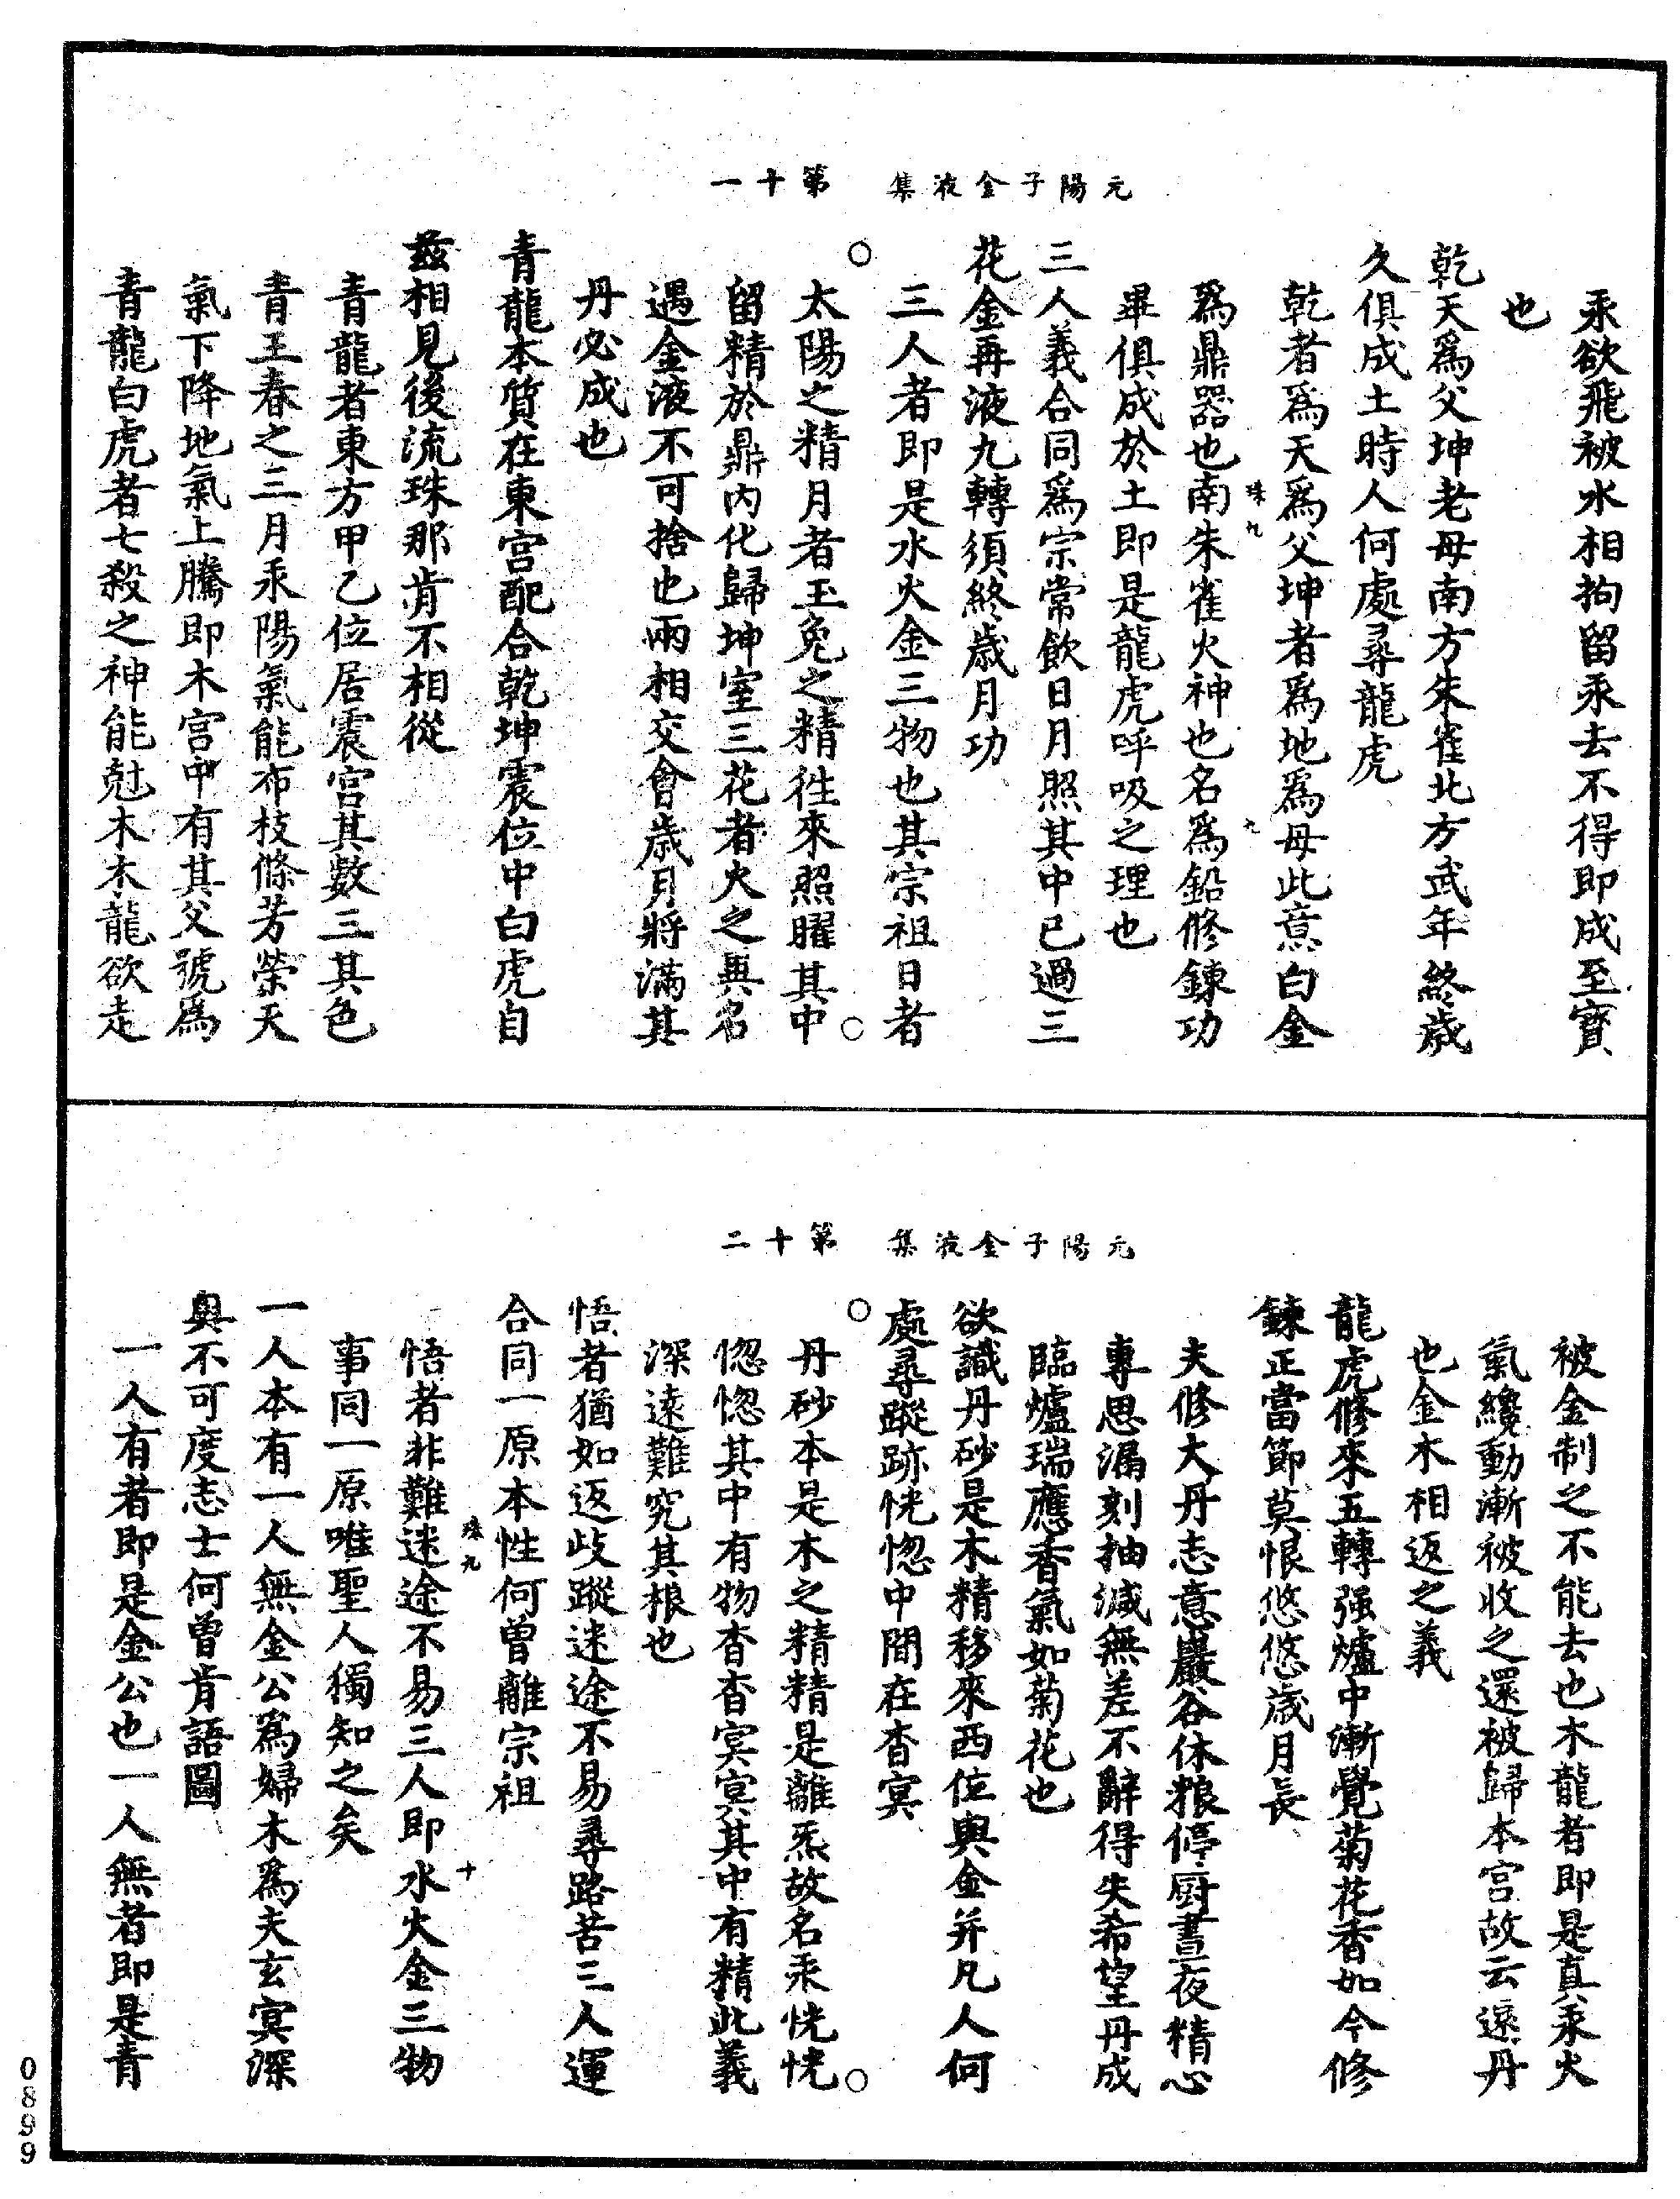 元陽子金液集　第十一
汞欲飛被水相拘留汞去不得即成至寶
也
乾天爲父坤老母南方朱雀北方武年終歲
久俱成土時人何處尋龍虎
乾者爲天爲父坤者爲地爲母此意白金
爲鼎器也南朱雀火神也名爲鉛修鍊功
畢俱成於土即是龍虎呼吸之理也
三人義合同爲宗常飲日月照其中已過三
花金再液九轉須終歲月功
三人者即是水火金三物也其宗祖日者
太陽之精月者玉兔之精徃來照曜其中
留精於鼎內化歸坤室三花者火之異名
遇金液不可捨也兩相交會歲月將滿其
丹必成也
青龍本質在東宮配合乾坤震位中白虎自
茲相見後流珠那肯不相從
青龍者東方甲乙位居震宮其數三其色
青王春之三月汞陽氣能布枝條芳榮天
氣下降地氣上騰即木宮中有其父號爲
青龍白虎者七殺之神能尅木木龍欲走
珠九
九
元陽子金液集　第十二
被金制之不能去也木龍者即是真汞火
氣纔動漸被收之還被歸本宮故云還丹
也金木相返之義
龍虎修來五轉强爐中漸覺菊花香如今修
鍊正當節莫恨悠悠歲月長
夫修大丹志意巖谷休粮停厨晝夜精心
專思漏刻抽減無差不辭得失希望丹成
臨爐瑞應香氣如菊花也
欲識丹砂是木精移來西位與金并凡人何
處尋蹤跡恍惚中間在杳冥
丹砂本是木之精精是離炁故名汞恍恍
惚惚其中有物杳杳冥冥其中有精此義
深遠難究其根也
悟者猶如返歧蹤迷途不易尋路苦三人運
合同一原本性何曾離宗祖
悟者非難迷途不易三人即水火金三物
事同一原唯聖人獨知之矣
一人本有一人無金公爲婦木爲夫玄冥深
奧不可度志士何曾肯語圖
一人有者即是金公也一人無者即是青
珠九
十
0899